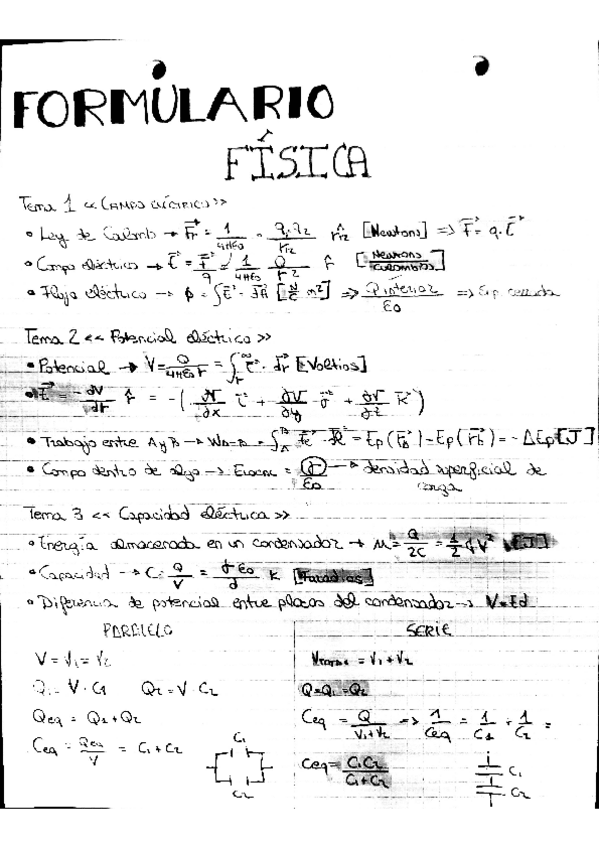 FORMULARIO
FÍSICA
Tema 1 << CAMPO ELÉCTRICO >>
• Ley de Coulomb → F⃗ = 1/4πε₀ · q₁q₂/r₁₂ r̂₁₂ [Newtons] => F⃗ = q·E⃗
• Campo eléctrico → E⃗ = F⃗/q = 1/4πε₀ Q/r² r̂ [Newtons/Coulombios]
• Flujo eléctrico → φ = ∫E⃗·dA⃗ [N/C m²] => Qinterior/ε₀ => Sup cerrada
Tema 2 << Potencial eléctrico >>
• Potencial → V = Q/4πε₀r = ∫ᵣ^∞ E⃗·dr⃗ [Voltios]
• E⃗ = -dV/dr r̂ = -(∂V/∂x i⃗ + ∂V/∂y j⃗ + ∂V/∂z k⃗)
• Trabajo entre A y B → = -ΔEp [J]
• Campo dentro de algo → = σ/ε₀ → densidad superficial de
carga
Tema 3 << Capacidad eléctrica >>
• Energía almacenada en un condensador → = Q/2C = 1/2 V² [J]
• Capacidad → C = Q/V = ε₀/d K [Faradios]
• Diferencia de potencial entre placas del condensador → V=Ed
PARALELO
V = V₁ = V₂
Q₁ = V·C₁ Q₂ = V·C₂
Qeq = Q₁+Q₂
Ceq = Qeq/V = C₁+C₂
C₁
C₂
SERIE
= V₁+V₂
Q=Q₁=Q₂
Ceq = Q/V₁+V₂ => 1/Ceq = 1/C₁ + 1/C₂ =
Ceq = C₁C₂/C₁+C₂
C₁
C₂